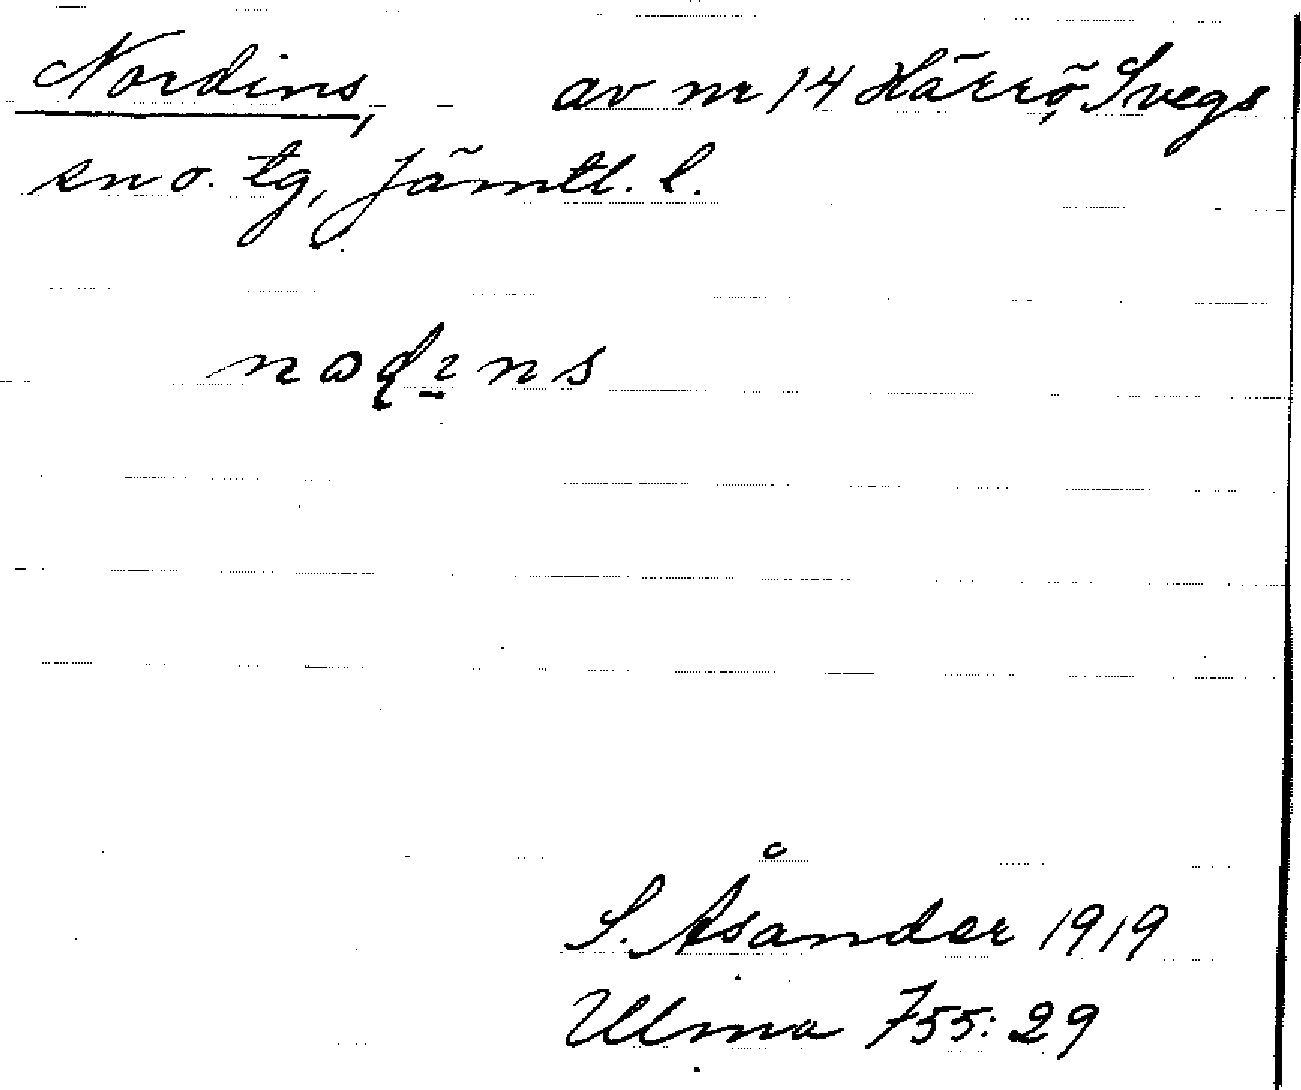 Nordins, av nr 14 Härrö, Svegs
sn o. tg, Jämtl. l.
nɷɖi̱ns
S. Åsander 1919
Ulma 755:29